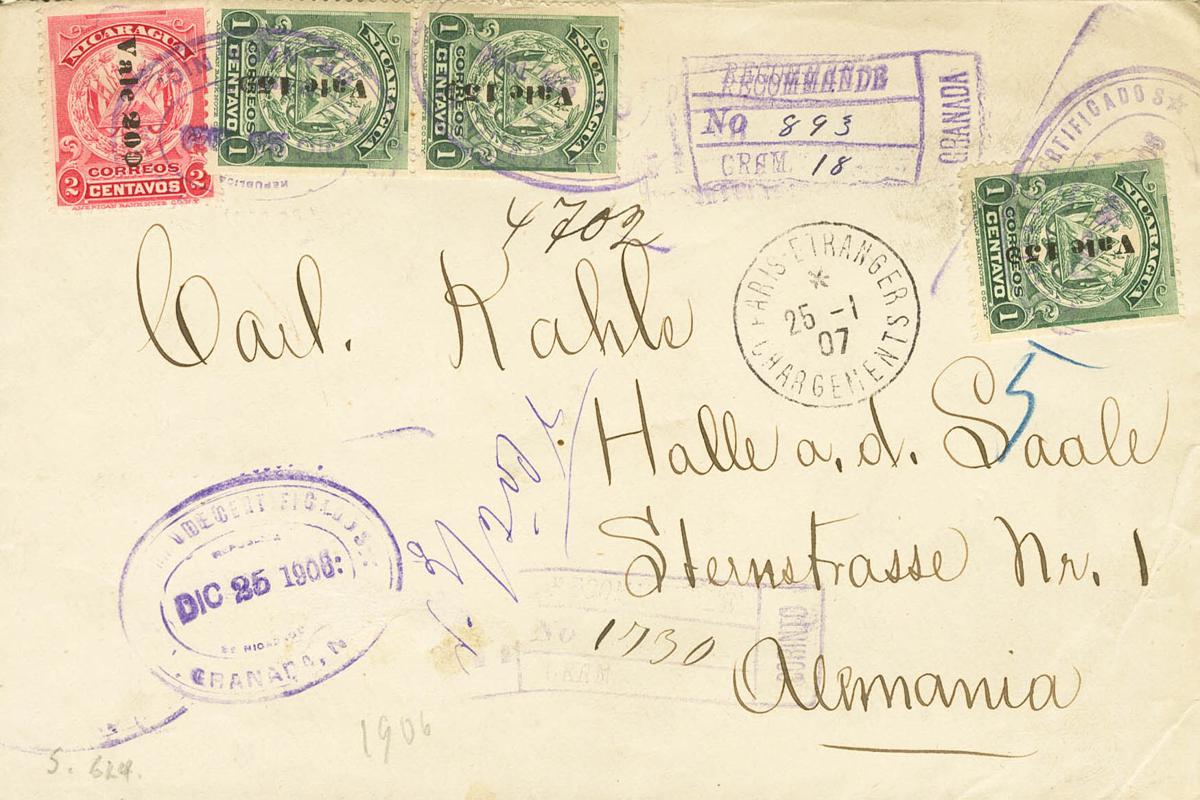 NICARAGUA
Vale 20¢
CORREOS
2 CENTAVOS 2
AMERICAN BANK NOTE CO. N.Y.
NICARAGUA
Vale 15
CORREOS
1 CENTAVO 1
NICARAGUA
Vale 15
CORREOS
1 CENTAVO 1
RECOMMANDE
No 893
GRAM 18
GRANADA
CERTIFICADOS
NICARAGUA
Vale 15
CORREOS
1 CENTAVO 1
4702
Carl. Kahle
PARIS-ETRANGER
25 -1
07
CHARGEMENTS
5
Halle a. d. Saale
Sternstrasse Nr. 1
1730
Alemania
DE CERTIFICADOS
REPUBLICA
DIC 25 1906:
DE NICARAGUA
GRANADA, N.
No
CORINTO
1906
S. 624.